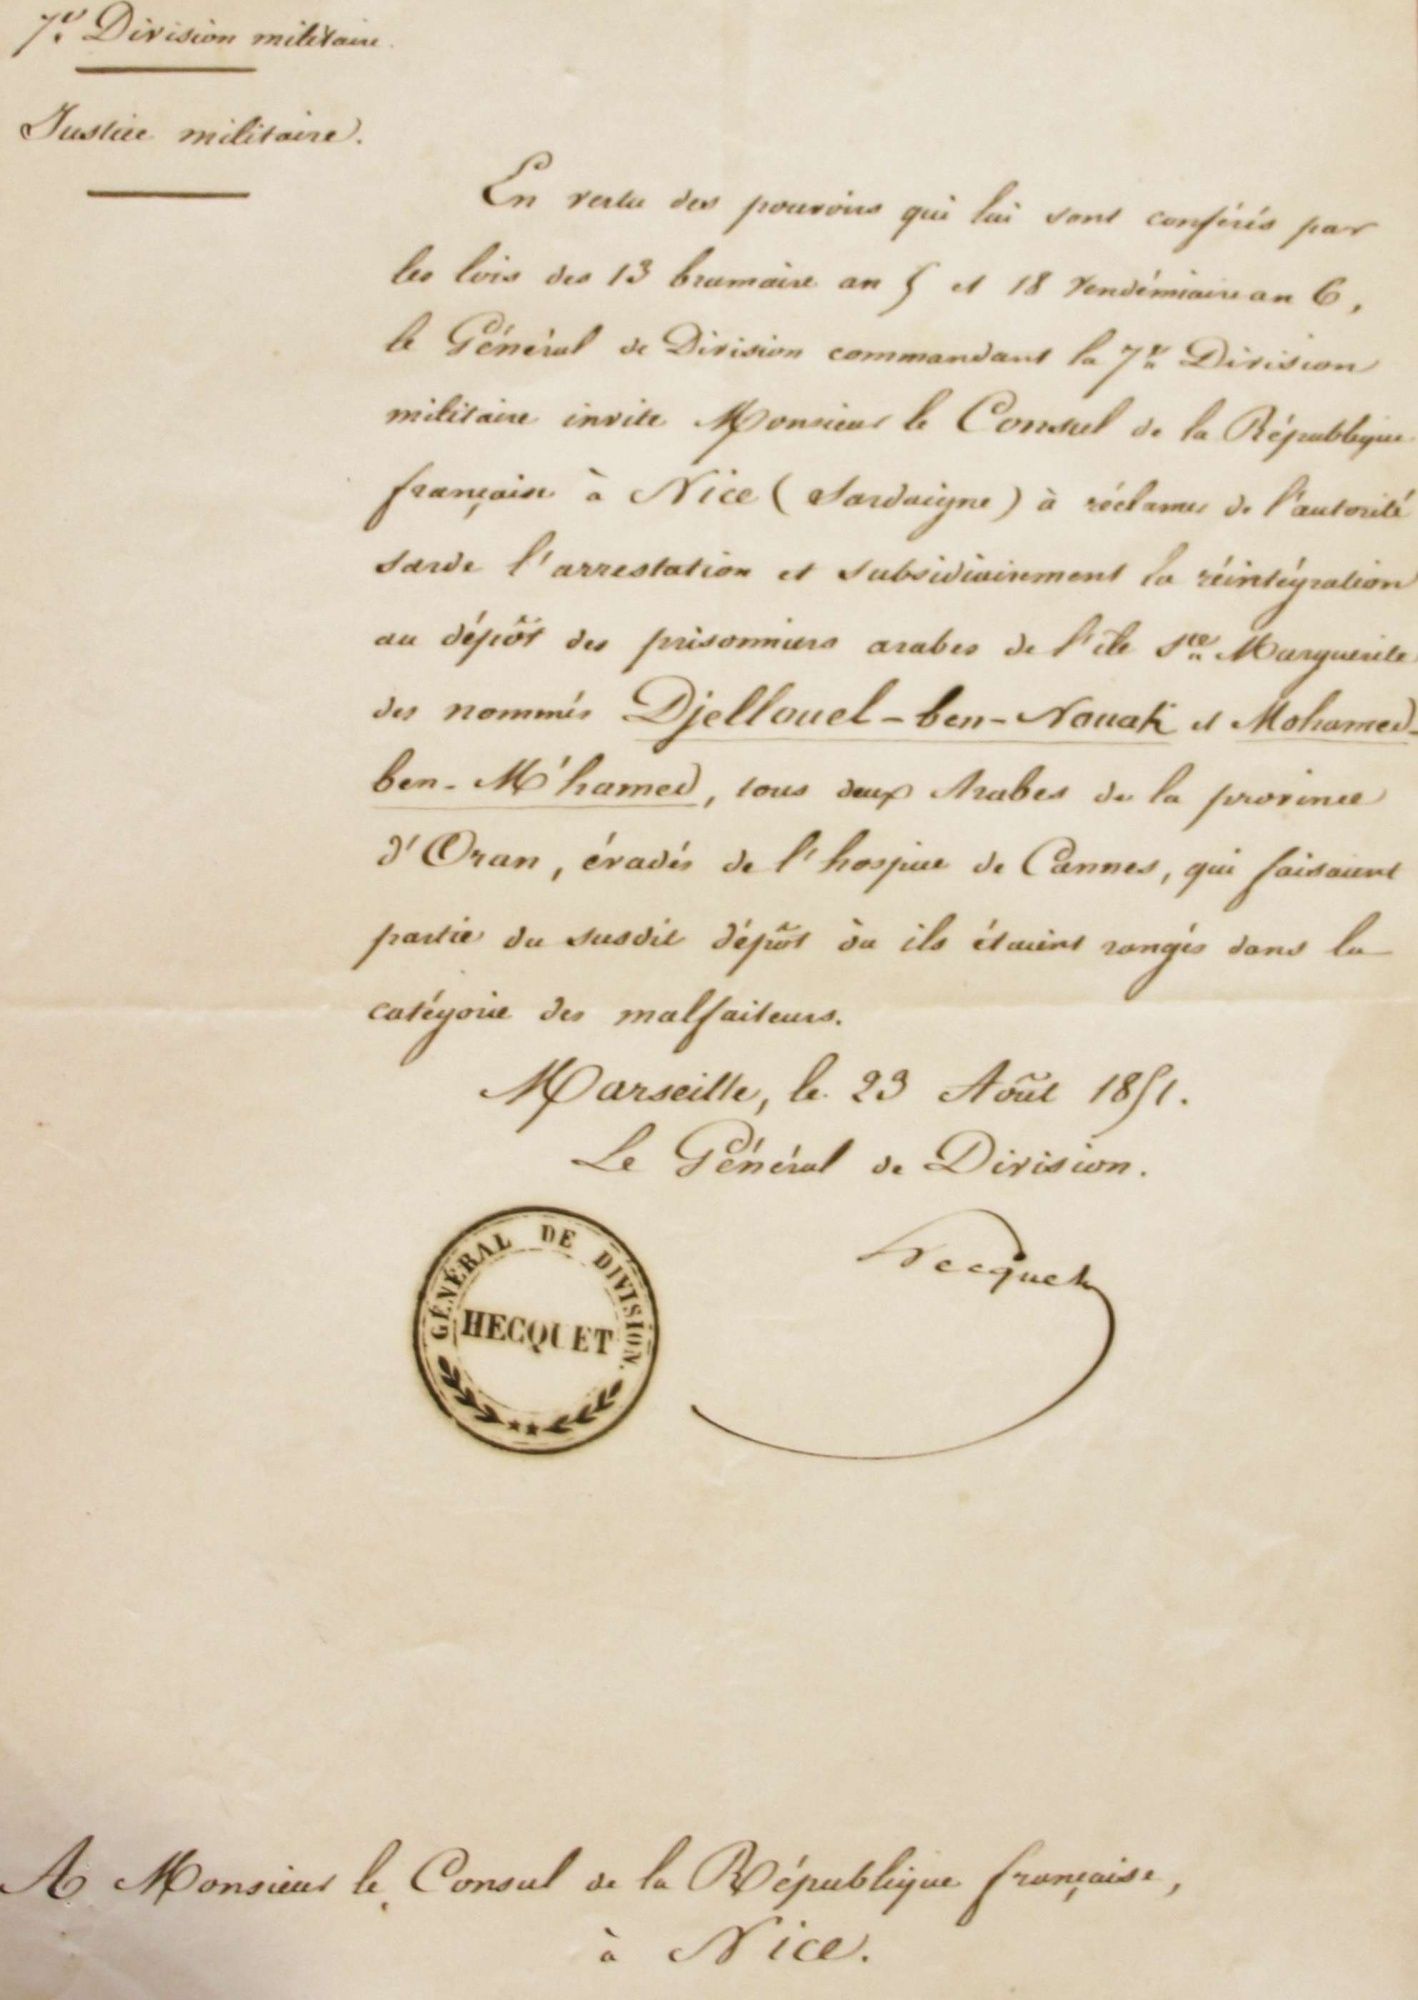 7e. Division militaire.
Justice militaire.
En vertu des pouvoirs qui lui sont conférés par
les lois des 13 brumaire an 5 et 18 vendémiaire an 6,
le Général de Division commandant la 7e. Division
militaire invite Monsieur le Consul de la République
française à Nice (Sardaigne) à réclamer de l'autorité
sarde l'arrestation et subsidiairement la réintégration
au dépôt des prisonniers arabes de l'île Ste. Marguerite
des nommés Djellouel-ben-Nouak et Mohamed-
ben-M'hamed, tous deux Arabes de la province
d'Oran, évadés de l'hospice de Cannes, qui faisaient
partie du susdit dépôt où ils étaient rangés dans la
catégorie des malfaiteurs.
Marseille, le 23 Août 1851.
Le Général de Division.
Hecquet
GÉNÉRAL DE DIVISION.
HECQUET
A Monsieur le Consul de la République française,
à Nice.